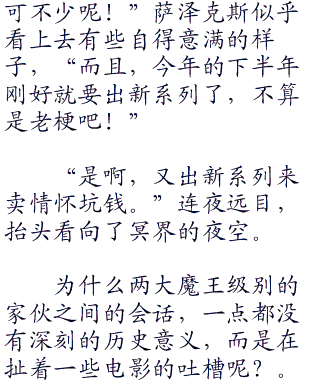 可不少呢！”萨泽克斯似乎
看上去有些自得意满的样
子，“而且，今年的下半年
刚好就要出新系列了，不算
是老梗吧！”
“是啊，又出新系列来
卖情怀坑钱。”连夜远目，
抬头看向了冥界的夜空。
为什么两大魔王级别的
家伙之间的会话，一点都没
有深刻的历史意义，而是在
扯着一些电影的吐槽呢？。